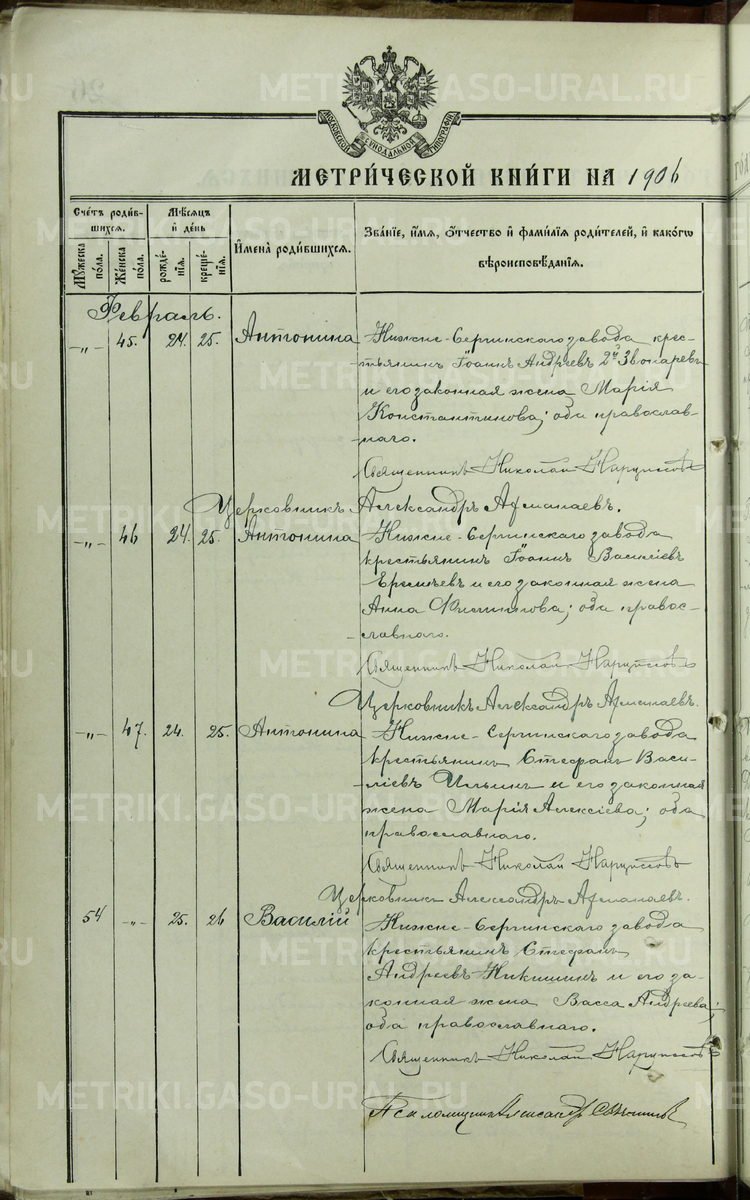 МОСКОВСКОЙ СѴНОДАЛЬНОЙ ТИПОГРАФІИ
МЕТРИ́ЧЕСКОЙ КНИ́ГИ НА 1906
Сче́тъ роди́в-
шихся.
Му́жеска по́ла.
Же́нска по́ла.
Мѣ́сяцъ
и де́нь
рожде́-
нія.
креще́-
нія.
И́мена роди́вшихся.
Зва́ніе, и́мя, о́тчество и фами́лія роди́телей, и како́гѡ
вѣроисповѣ́данія.
Февраль.
-„- 45. 24. 25. Антонина Нижне-Сергинскаго завода крес-
тьянинъ Іоаннъ Андреевъ 2й Звонаревъ
и его законная жена Марія
Константинова; оба православ-
наго.
Священникъ Николай
Церковникъ Александръ
-„- 46 24. 25. Антонина Нижне-Сергинскаго завода
крестьянинъ Іоаннъ Василіевъ
и его законная жена
Анна Филиппова; оба правос-
лавнаго.
Священникъ Николай
Церковникъ Александръ
-„- 47. 24. 25. Антонина Нижне-Сергинскаго завода
крестьянинъ Стефанъ Васи-
ліевъ Ильинъ и его законная
жена Марія Алексіева; оба
православнаго.
Священникъ Николай
Церковникъ Александръ
54 -„- 25. 26 Василій Нижне-Сергинскаго завода
крестьянинъ Стефанъ
Андреевъ Никишинъ и его за-
конная жена Васса Андреева;
оба православнаго.
Священникъ Николай
Псаломщикъ Александръ
METRIKI.GASO-URAL.RU